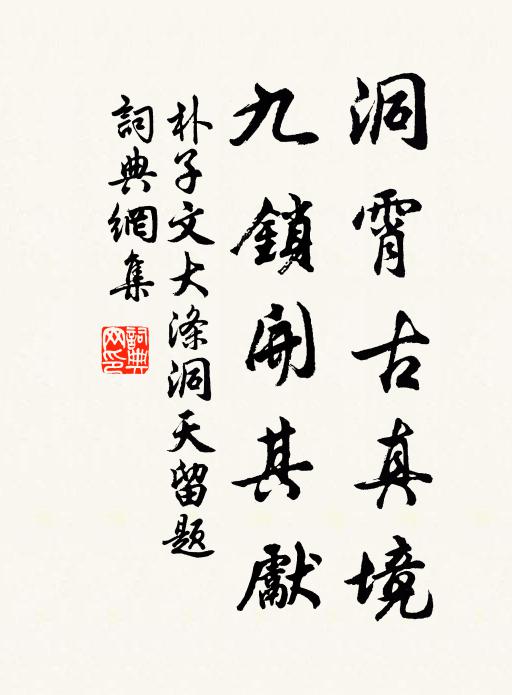 洞霄古真境
九鎖開其獻
朴子文大涤洞天留题
詞典網集
詞典網印